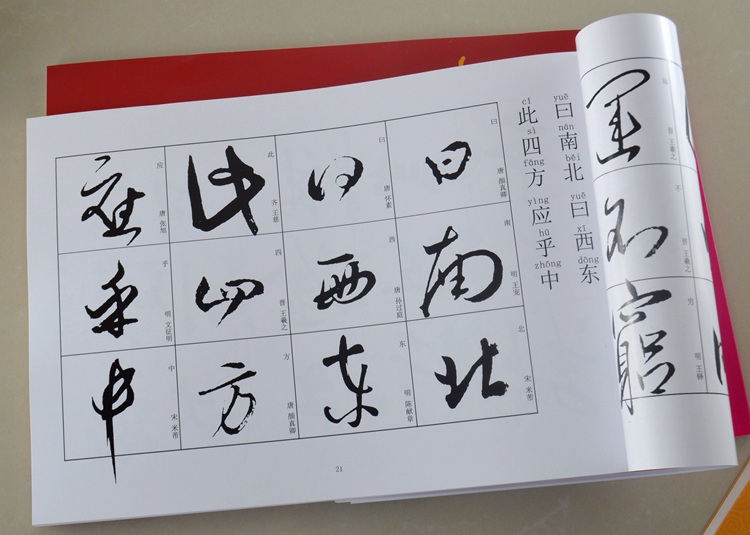 運
运 晋 王羲之
不
不 晋 王羲之
窮
穷 明 王铎
yuē nán běi yuē xī dōng
曰南北曰西东
cǐ sì fāng yìng hū zhōng
此四方应乎中
曰
曰 唐 颜真卿
南
南 明 王宠
北
北 宋 米芾
曰
曰 唐 怀素
西
西 唐 孙过庭
东
东 明 陈献章
此
此 齐 王慈
四
四 晋 王羲之
方
方 唐 颜真卿
应
应 唐 张旭
乎
乎 明 文征明
中
中 宋 米芾
21